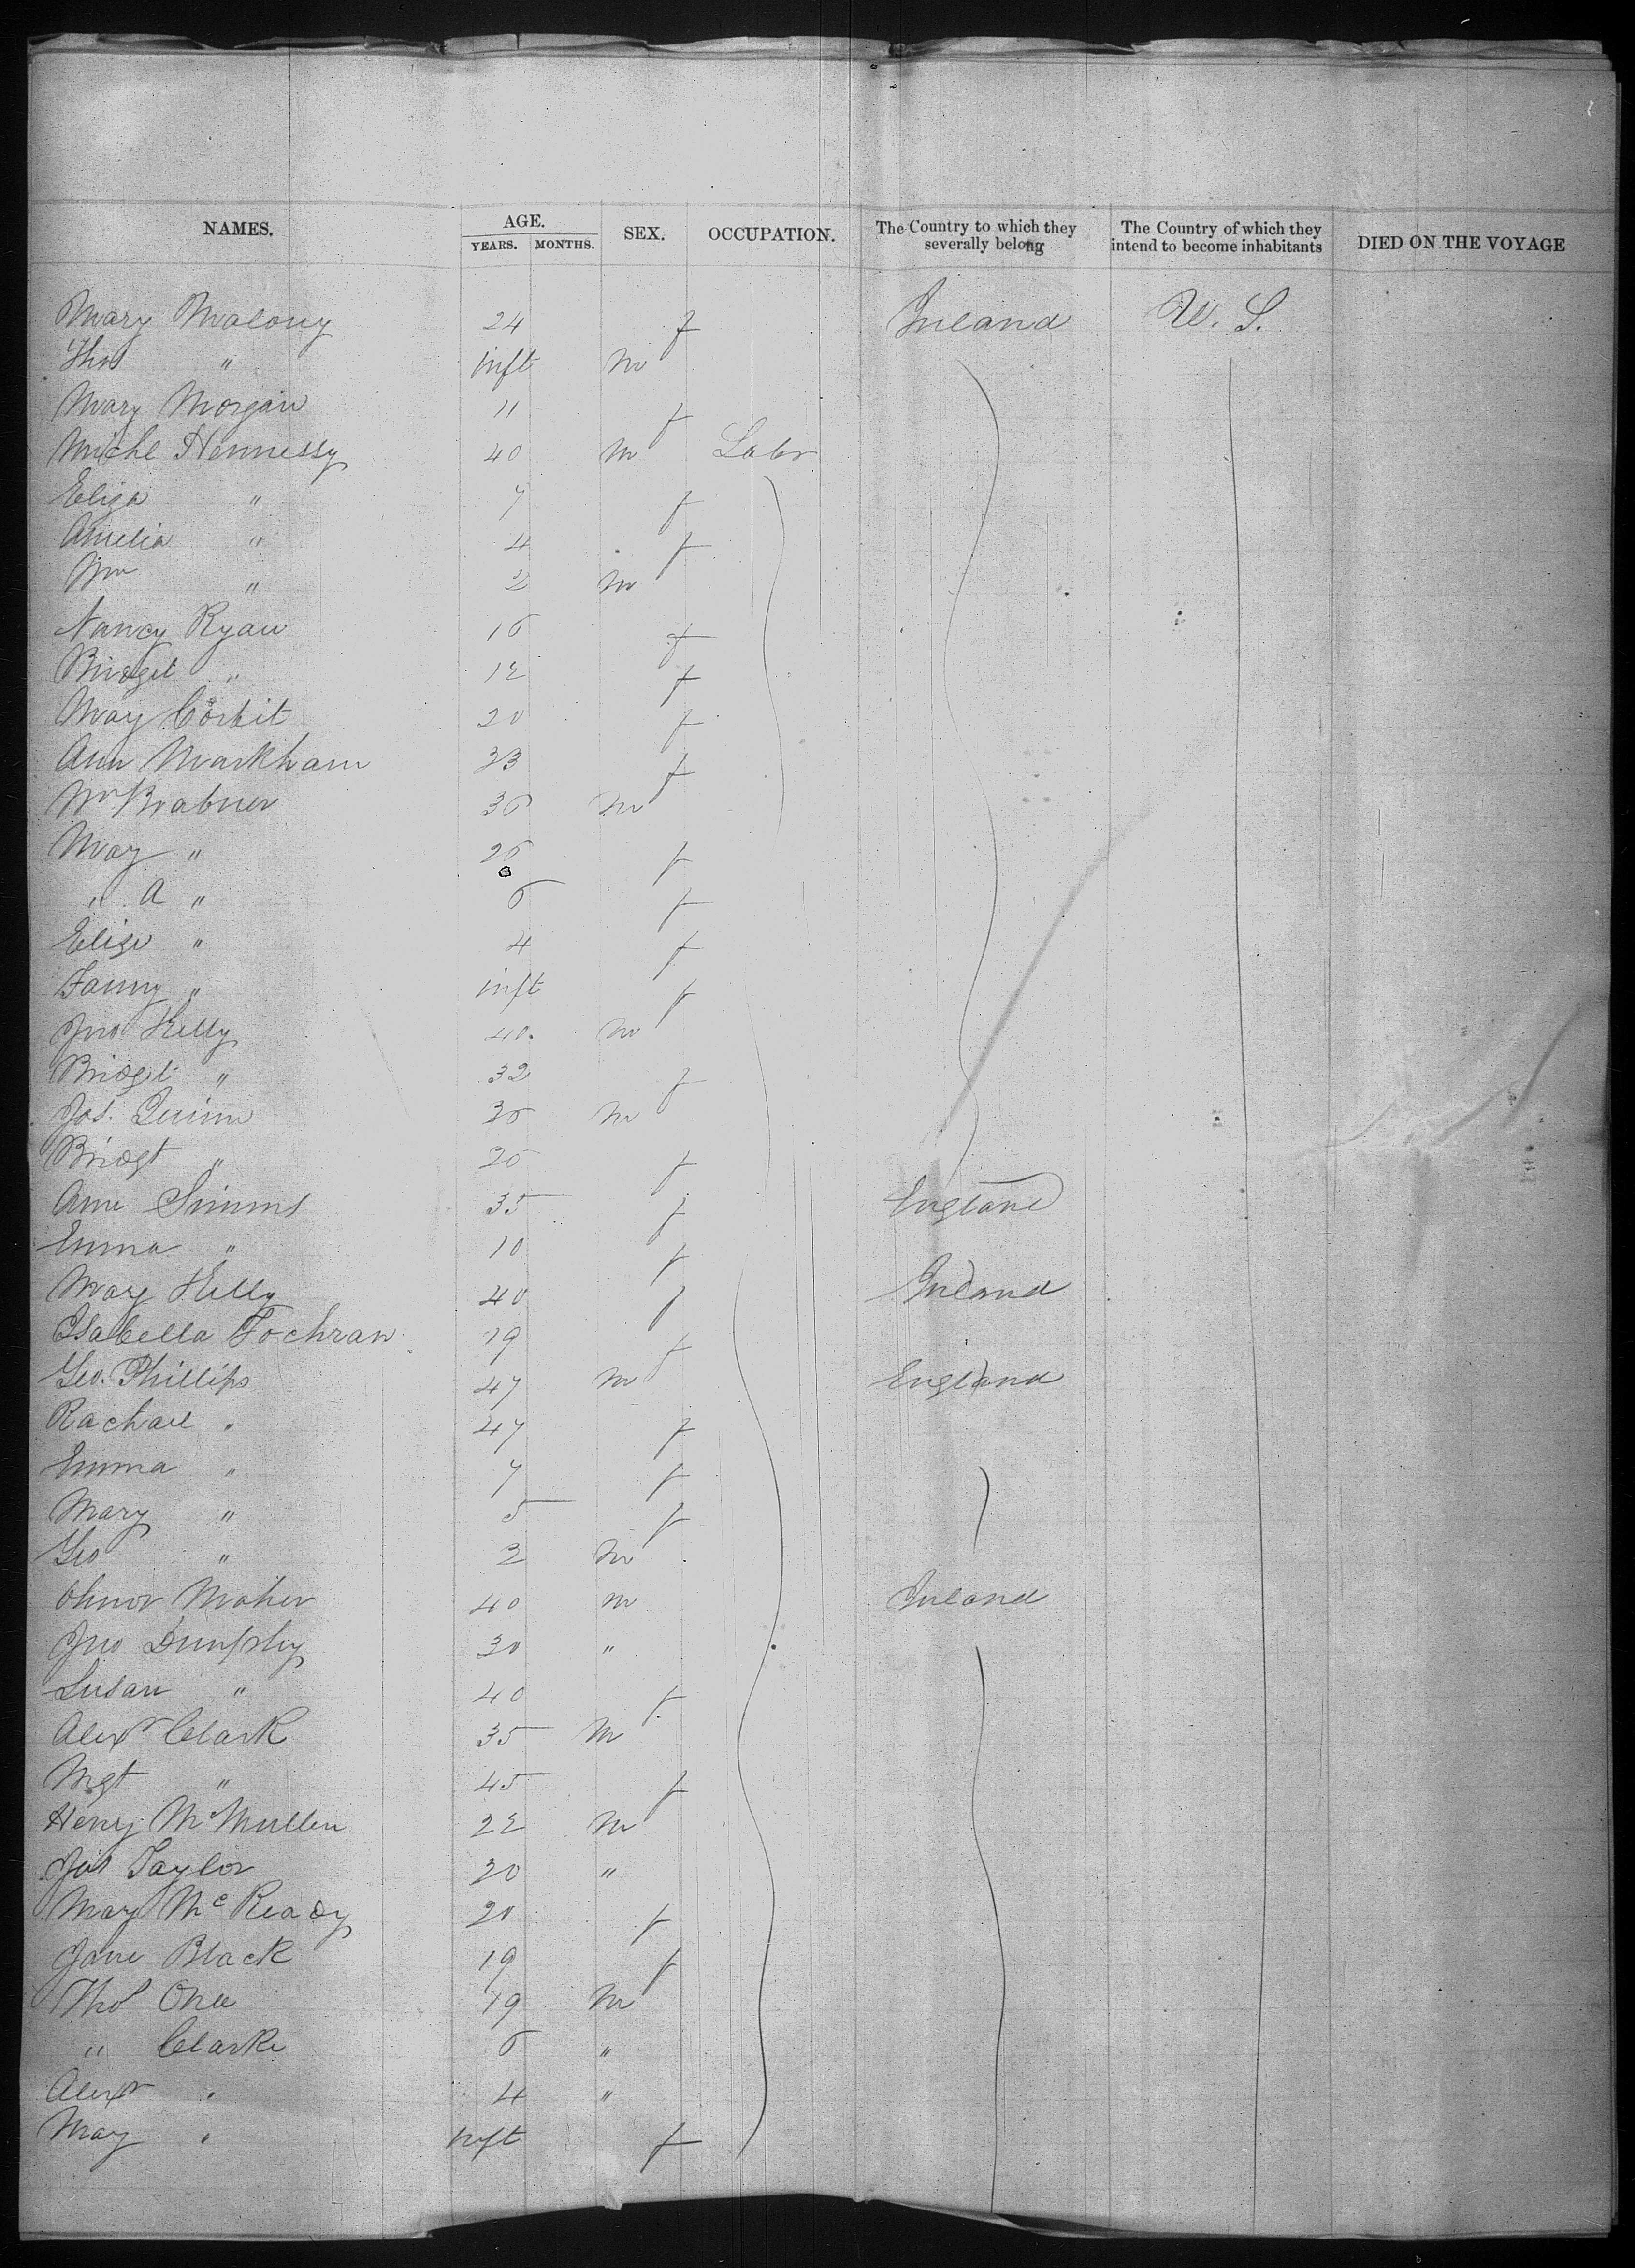 NAMES. AGE. YEARS. MONTHS. SEX. OCCUPATION. The Country to which they severally belong The Country of which they intend to become inhabitants DIED ON THE VOYAGE
Mary Malony 24 f Ireland U. S.
Thos " inft m
Mary Morgan 11 f
Michl Hennessy 40 m Labr
Eliza " 7 f
Amelia " 4 f
Wm " 2 m
Nancy Ryan 16 f
Bridget " 12 f
May Corbit 20 f
Ann Markham 23 f
Wm Brabner 36 m
May " 26 f
" A " 6 f
Eliza " 4 f
Fanny " inft f
Jno Kelly 40 m
Bridget " 32 f
Jos. Quinn 26 m
Bridgt " 26 f
Ann Simms 35 f England
Emma " 10 f
May Kelly 40 f Ireland
Isabella Fochran 19 f
Geo. Phillips 47 m England
Rachael " 47 f
Emma " 7 f
Mary " 5 f
Geo " 2 m
Maher 40 m Ireland
Jno Dunphy 30 "
Susan " 40 f
Alexr Clark 35 m
Mgt " 45 f
Henry McMullen 22 m
Jos Taylor 20 "
May McReady 20 f
Jane Black 19 f
Thos 19 m
" Clarke 6 "
Alexr " 4 "
May " inft f